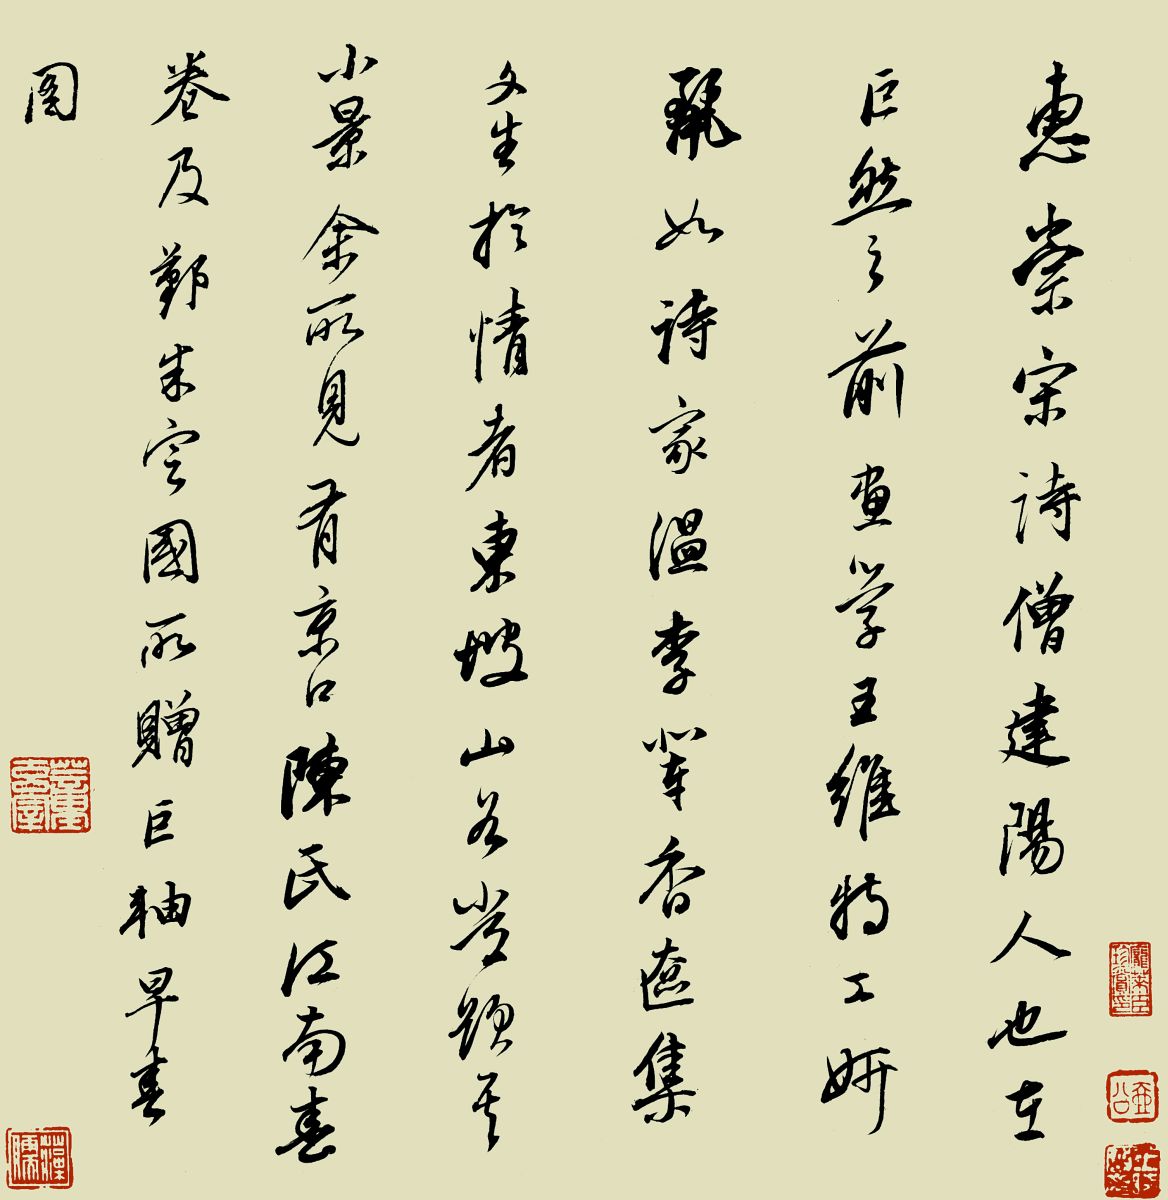 惠崇宋詩僧建陽人也在
巨然之前畫學王維特工妍
麗如詩家溫李輩香奩集
文生於情者東坡山谷皆題其
小景余所見有京口陳氏江南春
卷及鄞朱定國所贈巨軸早春
圖
龐萊臣珍賞印